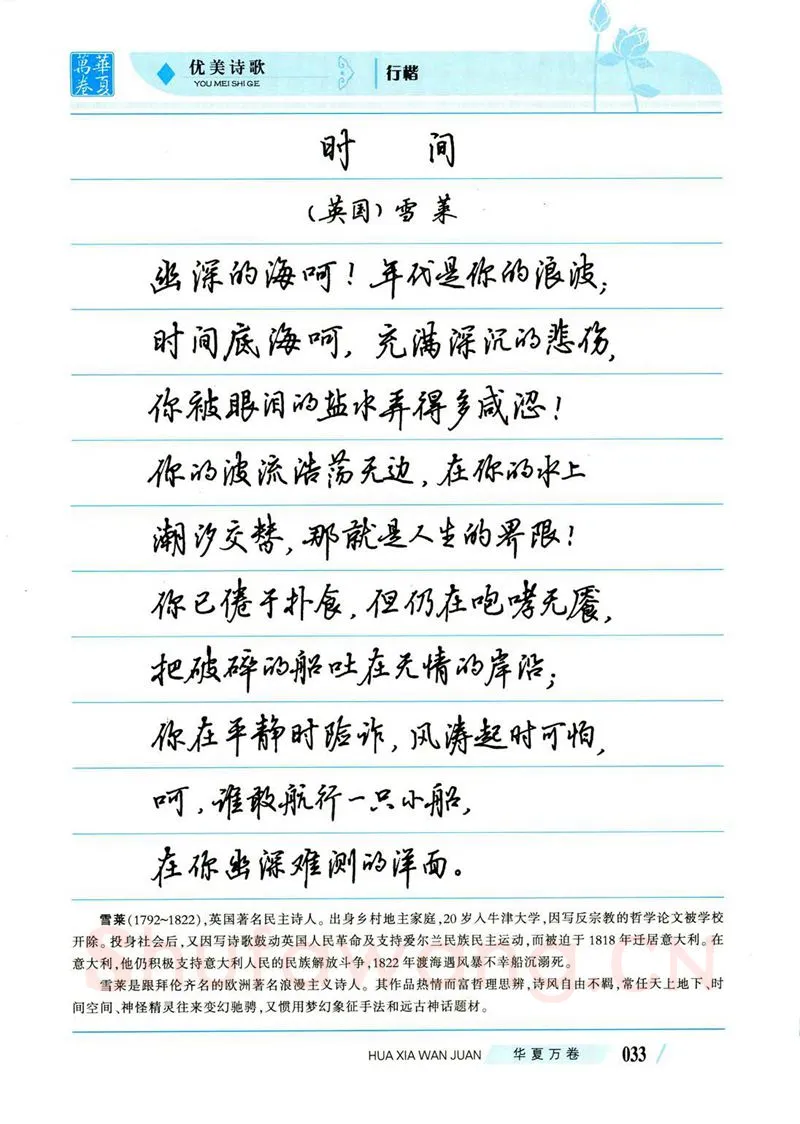 華夏
萬卷
优美诗歌
YOU MEI SHI GE
行楷
时 间
（英国）雪莱
幽深的海呵！年代是你的浪波；
时间底海呵，充满深沉的悲伤，
你被眼泪的盐水弄得多咸涩！
你的波流浩荡无边，在你的水上
潮汐交替，那就是人生的界限！
你已倦于扑食，但仍在咆哮无餍，
把破碎的船吐在无情的岸沿；
你在平静时险诈，风涛起时可怕，
呵，谁敢航行一只小船，
在你幽深难测的洋面。
雪莱(1792~1822)，英国著名民主诗人。出身乡村地主家庭，20 岁入牛津大学，因写反宗教的哲学论文被学校
开除。投身社会后，又因写诗歌鼓动英国人民革命及支持爱尔兰民族民主运动，而被迫于 1818 年迁居意大利。在
意大利，他仍积极支持意大利人民的民族解放斗争，1822 年渡海遇风暴不幸船沉溺死。
雪莱是跟拜伦齐名的欧洲著名浪漫主义诗人。其作品热情而富哲理思辨，诗风自由不羁，常任天上地下、时
间空间、神怪精灵往来变幻驰骋，又惯用梦幻象征手法和远古神话题材。
HUA XIA WAN JUAN
华夏万卷
033